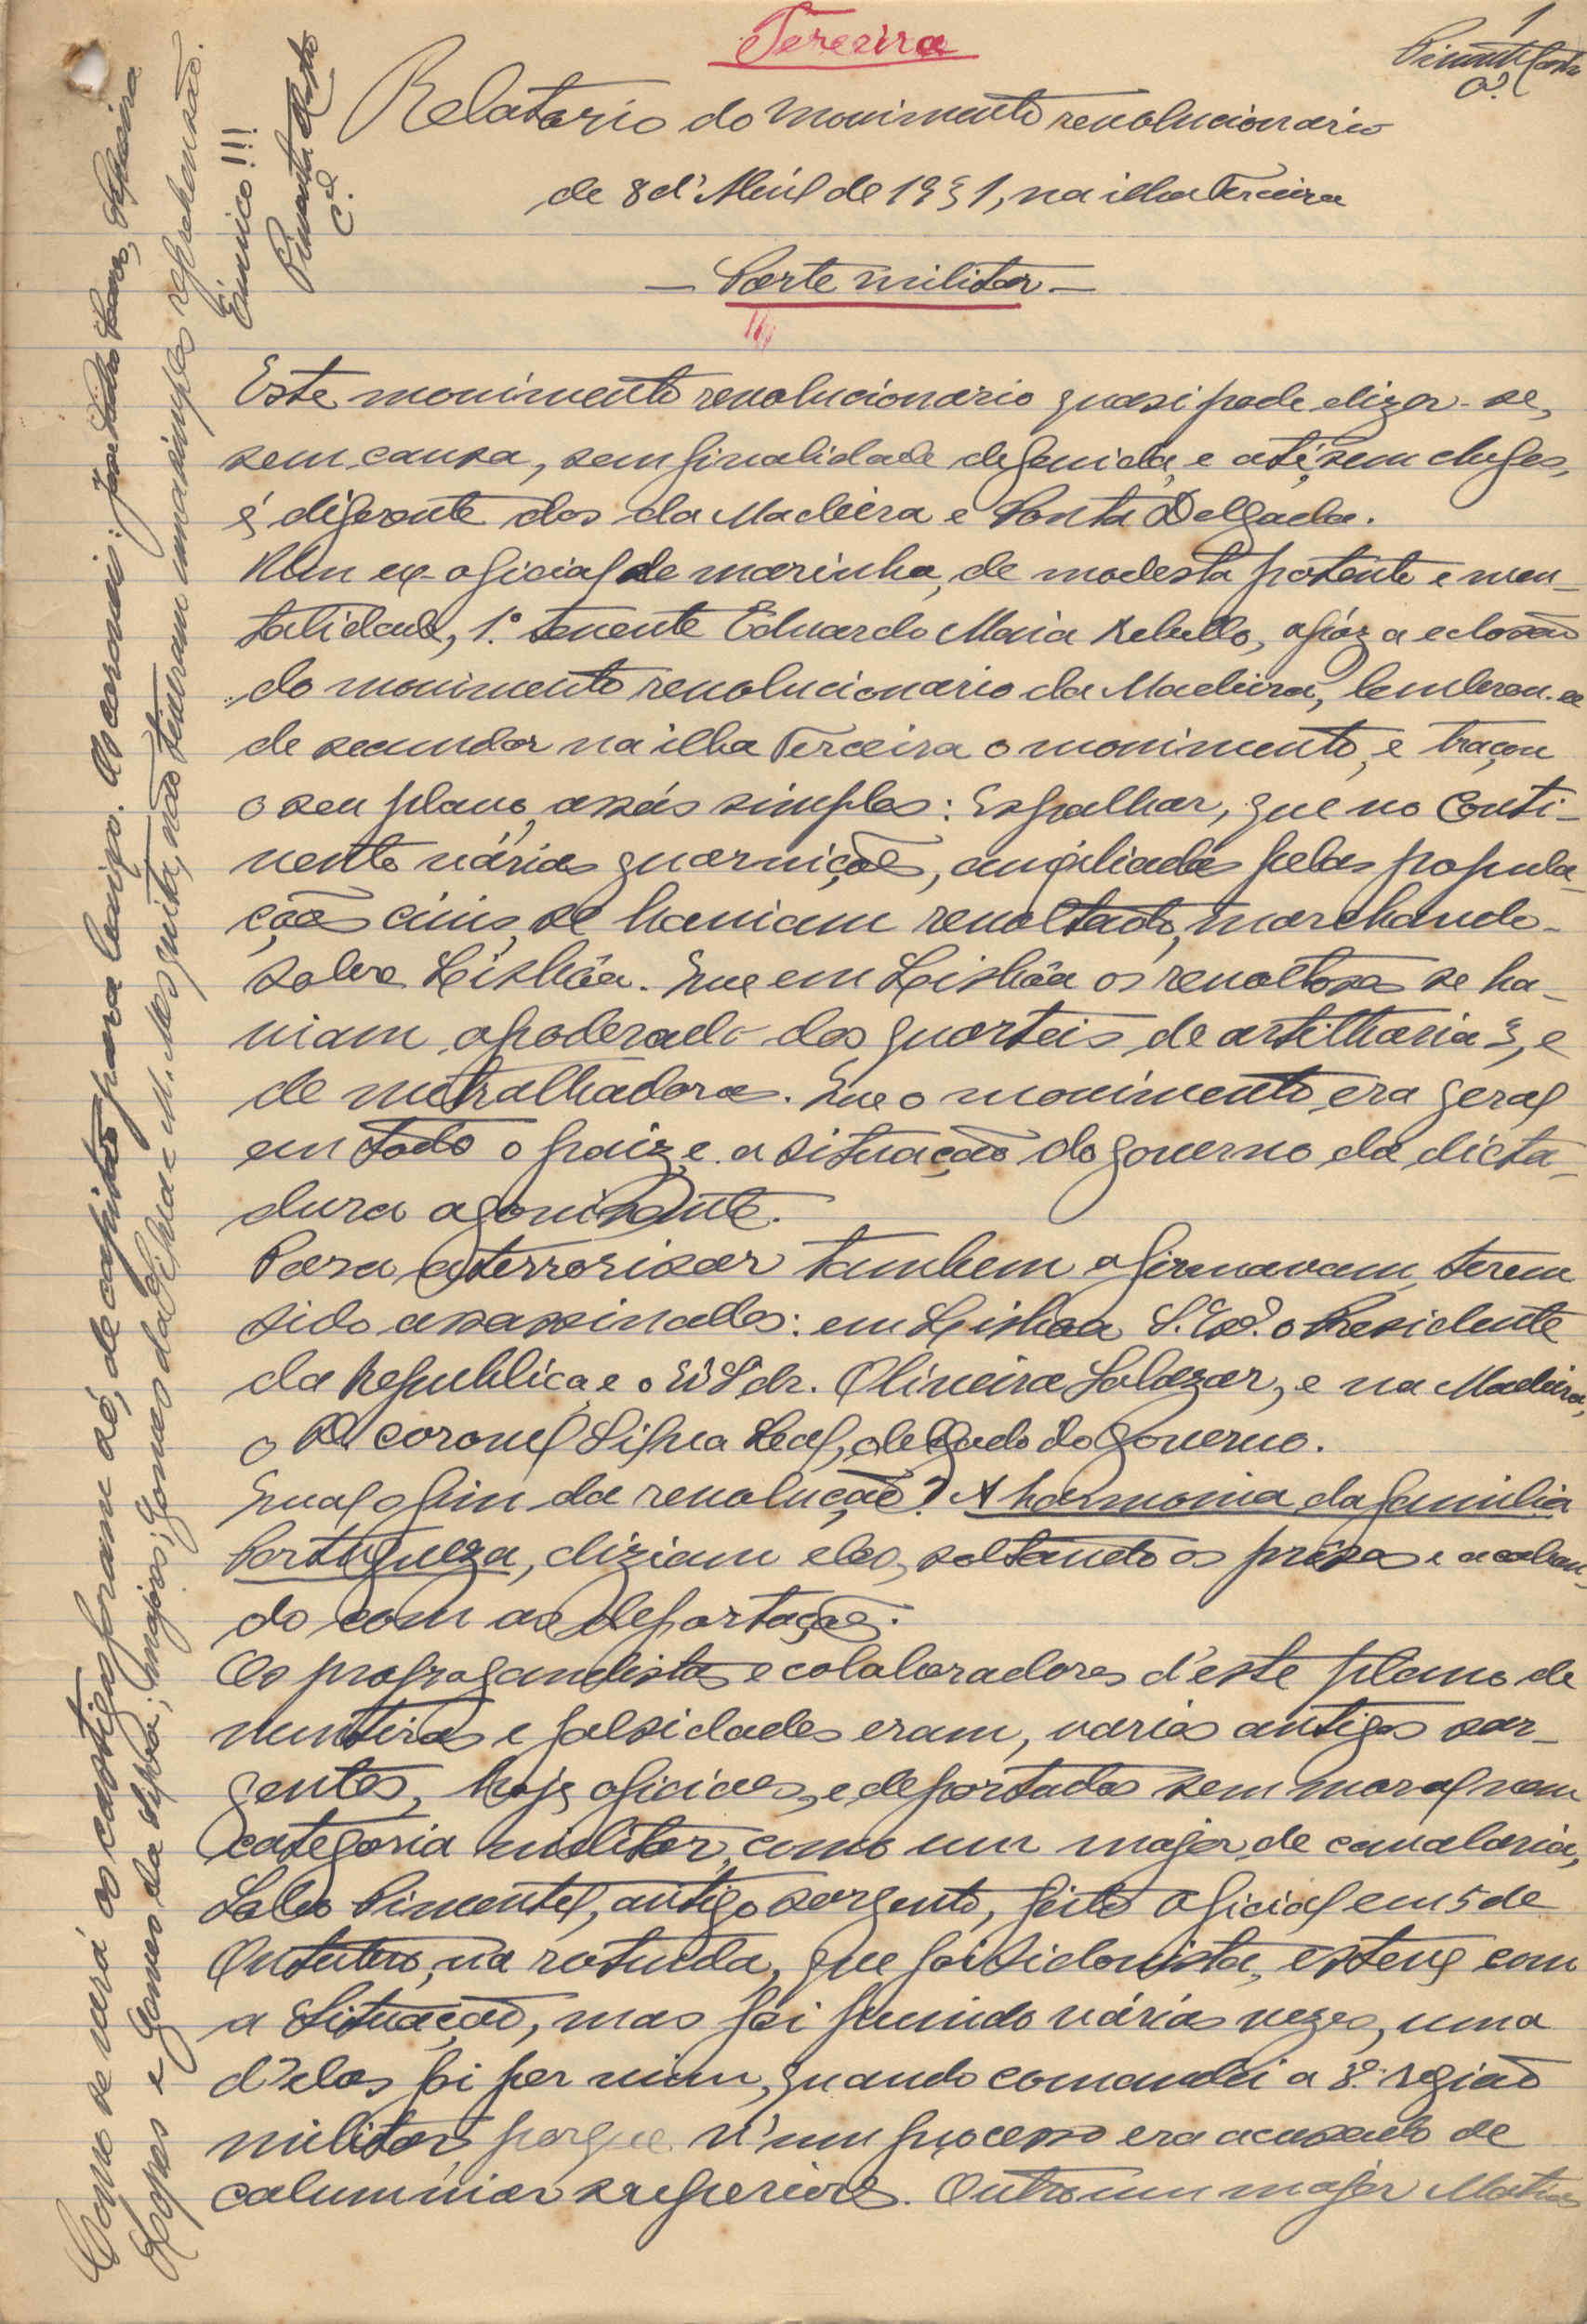 Terceira
1
Pimenta Castro
Relatorio do movimento revolucionario
de 8 d'Abril de 1931, na ilha Terceira
— Parte militar —
Este movimento revolucionario quasi pode dizer-se,
sem causa, sem finalidade defenida, e até sem chefes,
é diferente dos da Madeira e Ponta Delgada.
Um ex-oficial de marinha, de modesta patente e men-
talidade, 1.º tenente Eduardo Maria Rebello, apóz a eclosão
do movimento revolucionario da Madeira, lembrou-se
de secundar na ilha Terceira o movimento, e traçou
o seu plano, assás simples: Espalhar, que no Conti-
nente várias guarnições, auxiliadas pelas popula-
ções civis, se haviam revoltado, marchando-
sobre Lisbôa. Que em Lisbôa os revoltosos se ha-
viam apoderado dos quarteis de artilharia 3, e
de metralhadoras. Que o movimento era geral
em todo o paiz, e a situação do governo da dicta-
dura agonisante.
Para aterrorisar tambem afirmavam, terem
sido assassinados: em Lisboa S. Exª. o Presidente
da Republica, e o Exº Sr dr. Oliveira Salazar, e na Madeira,
o Sr coronel Silva Leal, delegado do Governo.
Qual o fim da revolução? A harmonia da familia
Portugueza, diziam eles, soltando os prêsos e acaban-
do com as deportações.
Os propagandistas e colaboradores d'este plano de
mentiras e falsidades eram, varios antigos sar-
gentos, hoje oficiaes, e deportados sem moral nem
categoria militar, como um major de cavalaria,
Lobo Pimentel, antigo sargento, feito oficial em 5 de
Outubro, na rotunda, que foi sidonista, esteve com
a Situação, mas foi punido várias vezes, uma
d'elas foi por mim, quando comandei a 3ª. região
militar, porque n'um processo era acusado de
calumniar superiores. Outro um major Matias
Como se verá os castigos foram só, de capitão para baixo. Os coroneis:
Lopes e Gomes da Silva; majores; Gomes da Silva e M. Mesquita, não tiveram uma simples reprehensão.
Einico!!!
Pimenta Castro
C.el